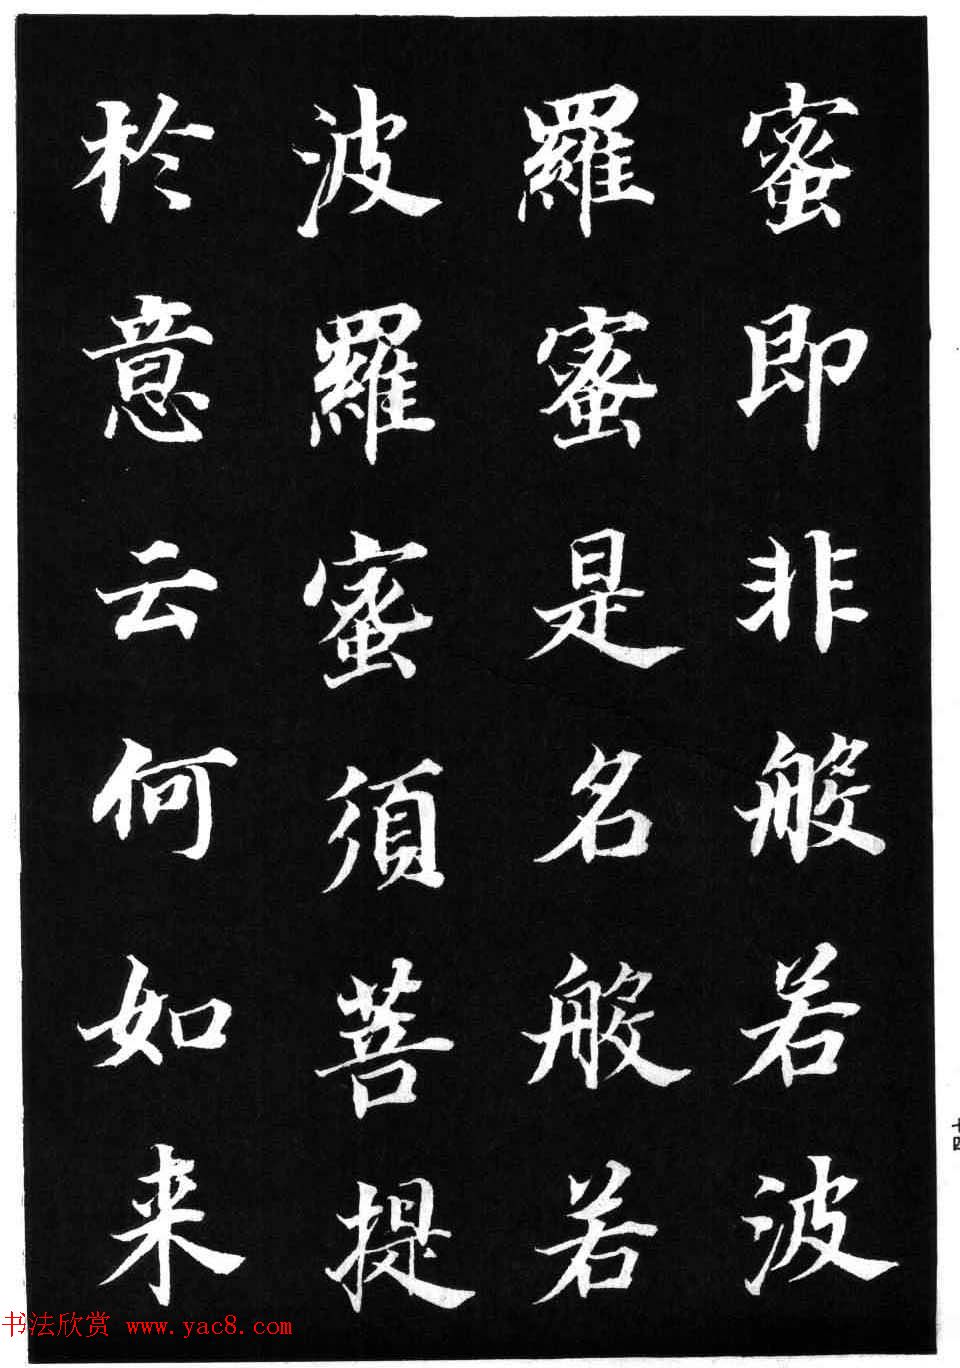 蜜即非般若波
羅蜜是名般若
波羅蜜須菩提
於意云何如来
十四
书法欣赏 www.yac8.com